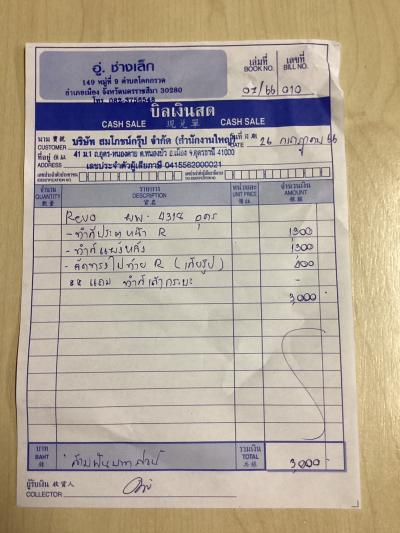 อู่. ช่างเล็ก
149 หมู่ที่ 9 ตำบลโคกกรวด
อำเภอเมือง จังหวัดนครราชสีมา 30280
เล่มที่ เลขที่
BOOK NO. BILL NO.
07/66 010
บิลเงินสด
CASH SALE 現兌單 CASH SALE
นาม
CUSTOMER บริษัท สมโภชน์กรุ๊ป จำกัด (สำนักงานใหญ่) วันที่ DATE 26 กรกฎาคม 66
ที่อยู่ 41 ม.1 ถ.อุดร-หนองคาย ต.หนองบัว อ.เมือง จ.อุดรธานี 41000
เลขประจำตัวผู้เสียภาษี 0415562000021
จำนวน รายการ หน่วยละ จำนวนเงิน
QUANTITY DESCRIPTION UNIT PRICE AMOUNT
Revo ผพ- 4318 อุดร
- ทำสีประตูหน้า R 1300
- ทำสีแผงหลัง 1300
- ตัดทรงไฟท้าย R 400
แถม ทำสี -
3,000
บาท
BAHT
สามพันบาทถ้วน
รวมเงิน
TOTAL 3,000 -
ผู้รับเงิน
COLLECTOR